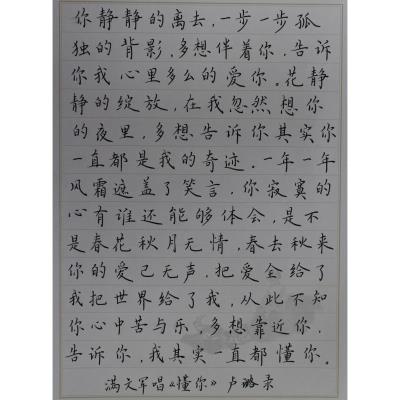 你静静的离去，一步一步孤
独的背影，多想伴着你，告诉
你我心里多么的爱你。花静
静的绽放，在我忽然想你
的夜里，多想告诉你其实你
一直都是我的奇迹．一年一年
风霜遮盖了笑言，你寂寞的
心有谁还能够体会，是不
是春花秋月无情，春去秋来
你的爱已无声，把爱全给了
我把世界给了我，从此不知
你心中苦与乐，多想靠近你，
告诉你，我其实一直都懂你。
满文军唱《懂你》卢璐录